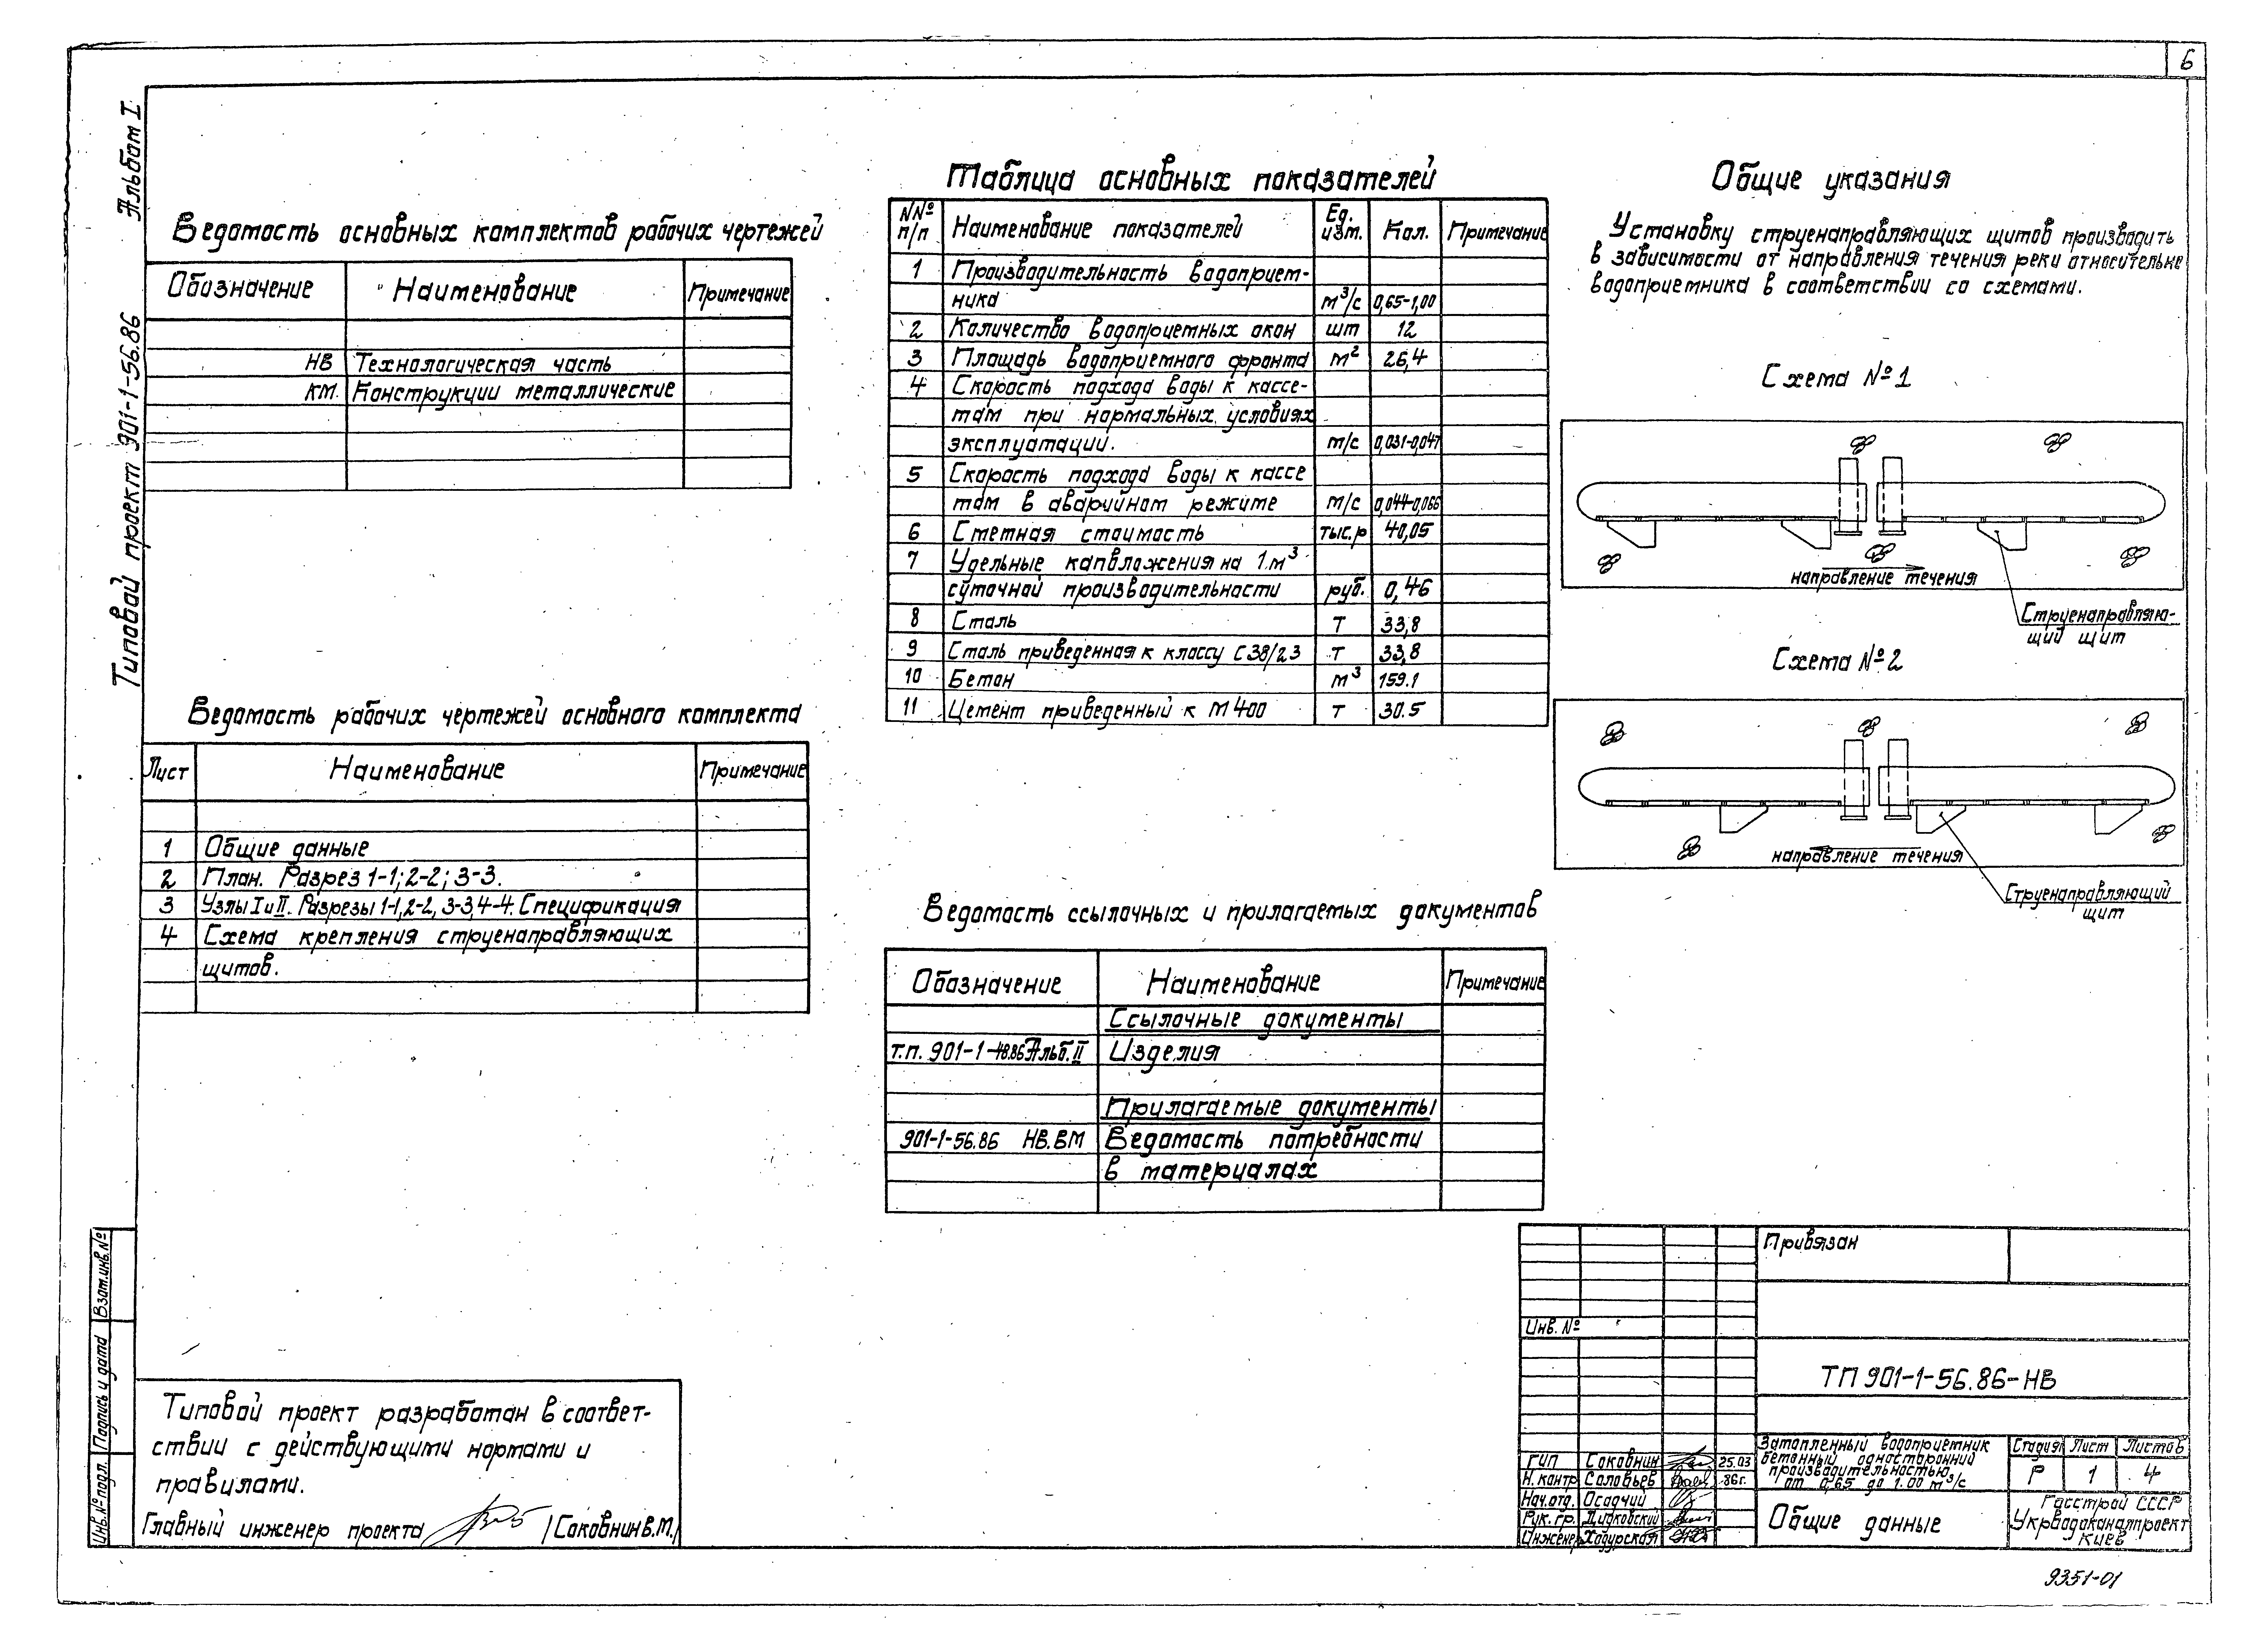 6
Альбом I
Типовой проект 901-1-56.86
Ведомость основных комплектов рабочих чертежей
Обозначение Наименование Примечание
НВ Технологическая часть
КМ. Конструкции металлические
Ведомость рабочих чертежей основного комплекта
Лист Наименование Примечание
1 Общие данные
2 План. Разрез 1-1; 2-2; 3-3.
3 Узлы I и II. Разрезы 1-1, 2-2, 3-3, 4-4. Спецификация
4 Схема крепления струенаправляющих
щитов.
Таблица основных показателей
NNº п/п Наименование показателей Ед. изм. Кол. Примечание
1 Производительность водоприем-
ника м³/с 0,65-1,00
2 Количество водоприемных окон шт 12
3 Площадь водоприемного фронта м² 26,4
4 Скорость подхода воды к кассе-
там при нормальных условиях
эксплуатации. м/с 0,031-0,047
5 Скорость подхода воды к кассе
там в аварийном режиме м/с 0,044-0,066
6 Сметная стоимость тыс.р 40,05
7 Удельные капвложения на 1 м³
суточной производительности руб. 0,46
8 Сталь т 33,8
9 Сталь приведенная к классу С38/23 т 33,8
10 Бетон м³ 159.1
11 Цемент приведенный к М400 т 30.5
Ведомость ссылочных и прилагаемых документов
Обозначение Наименование Примечание
Ссылочные документы
т.п. 901-1-48.86 Альб. II Изделия
Прилагаемые документы
901-1-56.86 НВ.ВМ Ведомость потребности
в материалах
Общие указания
Установку струенаправляющих щитов производить
в зависимости от направления течения реки относительно
водоприемника в соответствии со схемами.
Схема №1
направление течения
Струенаправляю-
щий щит
Схема №2
направление течения
Струенаправляющий
щит
Взам.инв.№
Подпись и дата
Инв.№ подл.
Типовой проект разработан в соответ-
ствии с действующими нормами и
правилами.
Главный инженер проекта /Соковнин В.М./
Привязан
Инв. №
ТП 901-1-56.86-НВ
ГИП Соковнин 25.03
Н. контр Соловьев 86г.
Нач.отд. Осадчий
Рук. гр.
Инженер Ходурская
Затопленный водоприемник
бетонный односторонний
производительностью
от 0,65 до 1.00 м³/с
Стадия Лист Листов
Р 1 4
Общие данные
Госстрой СССР
Укрводоканалпроект
Киев
9351-01